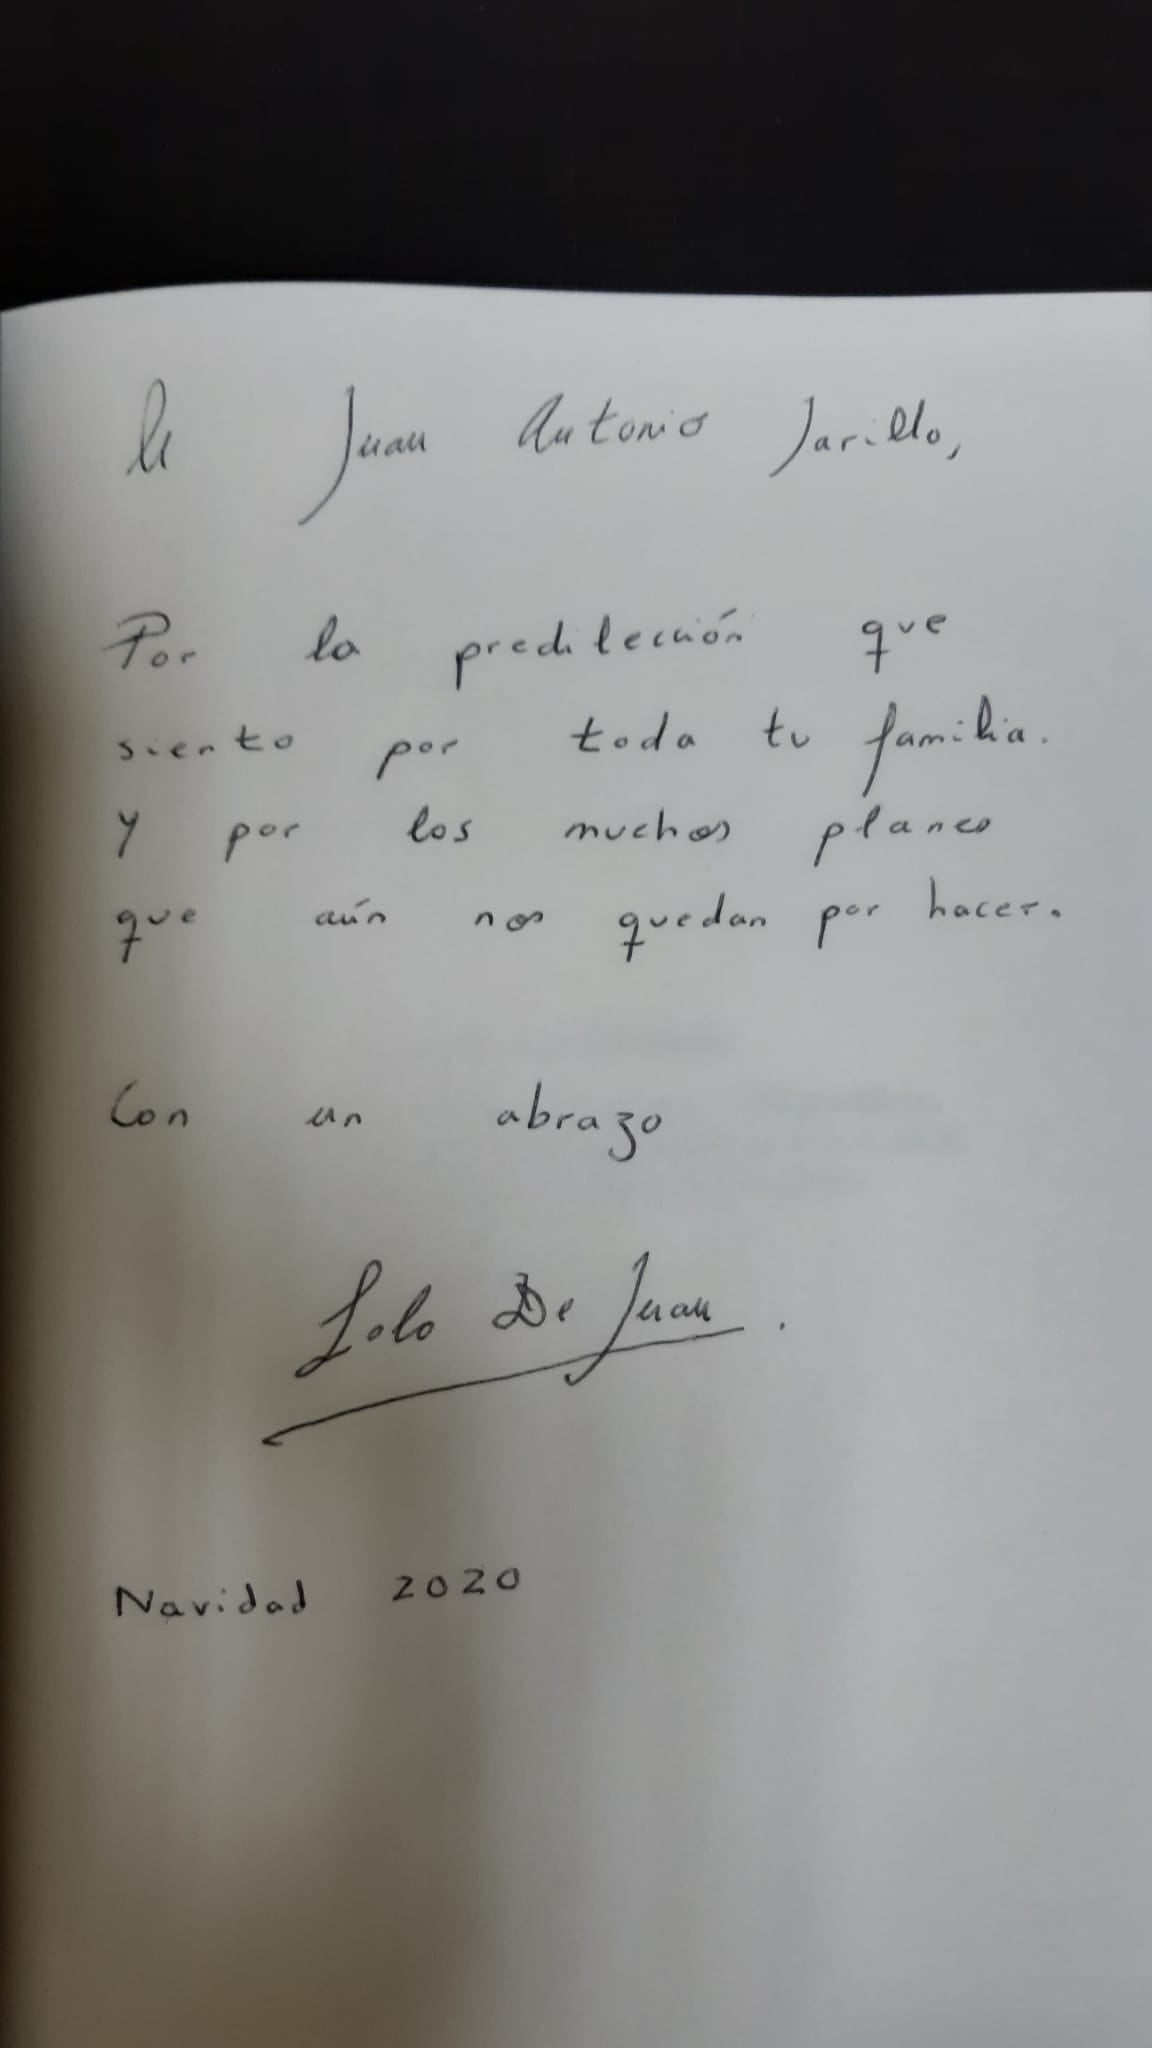 A Juan Antonio Jarillo,
Por la predilección que
siento por toda tu familia.
Y por los muchos planes
que aún nos quedan por hacer.
Con un abrazo
Lolo De Juan.
Navidad 2020